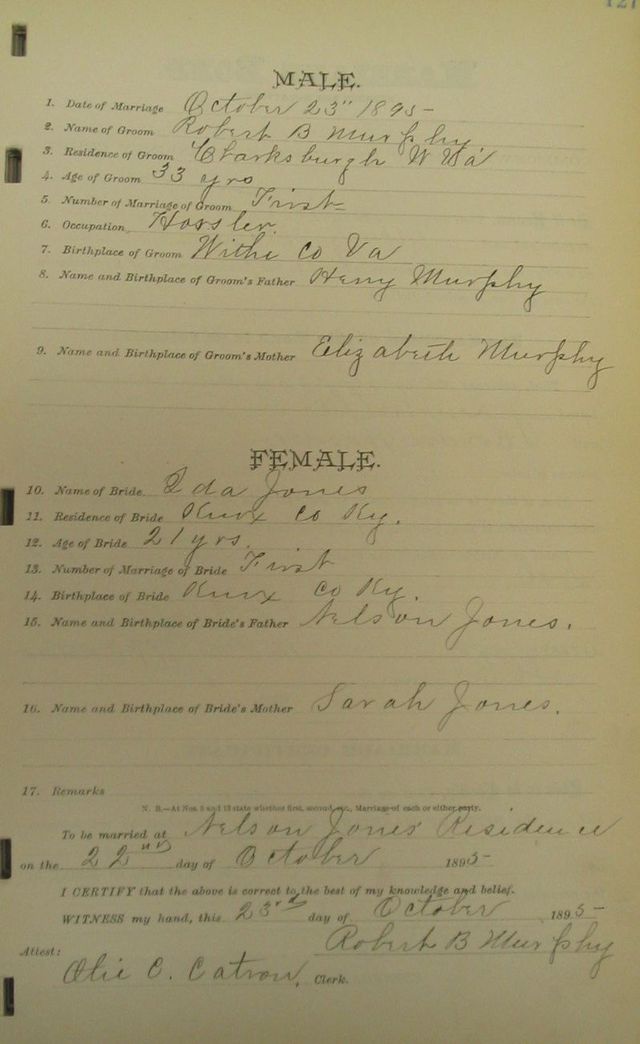 127
MALE.
1. Date of Marriage October 23" 1895
2. Name of Groom Robert B Murphy
3. Residence of Groom Clarksburgh W Va
4. Age of Groom 33 yrs
5. Number of Marriage of Groom First
6. Occupation Hossler.
7. Birthplace of Groom Withe Co Va
8. Name and Birthplace of Groom's Father Henry Murphy
9. Name and Birthplace of Groom's Mother Elizabeth Murphy
FEMALE.
10. Name of Bride Ida Jones
11. Residence of Bride Knox Co Ky.
12. Age of Bride 21 yrs.
13. Number of Marriage of Bride First
14. Birthplace of Bride Knox Co Ky.
15. Name and Birthplace of Bride's Father Nelson Jones.
16. Name and Birthplace of Bride's Mother Sarah Jones.
17. Remarks
N. B.—At Nos. 5 and 13 state whether first, second, etc., Marriage of each or either party.
To be married at Nelson Jones Residence
on the 22nd day of October 1895
I CERTIFY that the above is correct to the best of my knowledge and belief.
WITNESS my hand, this 23rd day of October 1895
Robert B Murphy
Attest:
Olie C. Catron, Clerk.